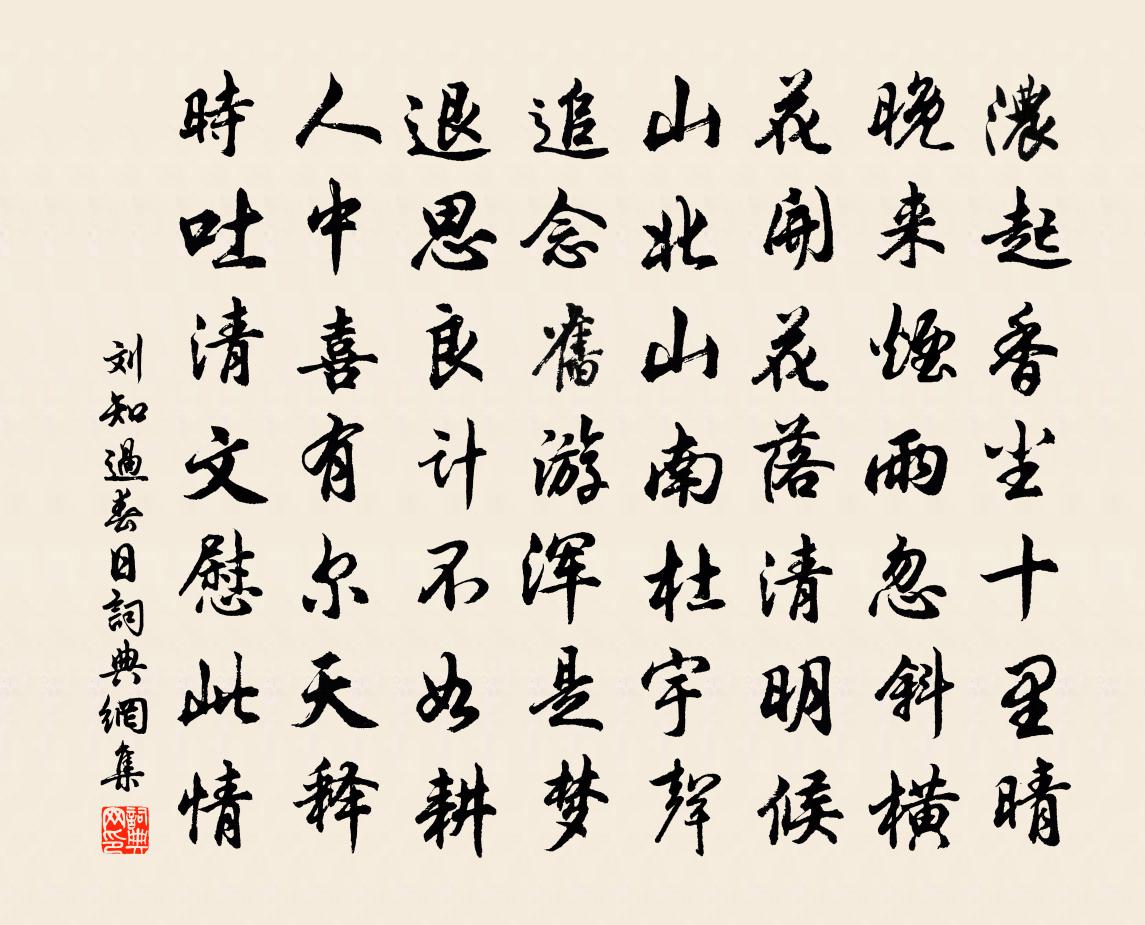 濃起香尘十里晴
晚来煙雨忽斜橫
花開花落清明候
山北山南杜宇聲
追念舊游浑是梦
退思良计不如耕
人中喜有尔天释
時吐清文慰此情
刘知過春日詞典網集
詞典网印